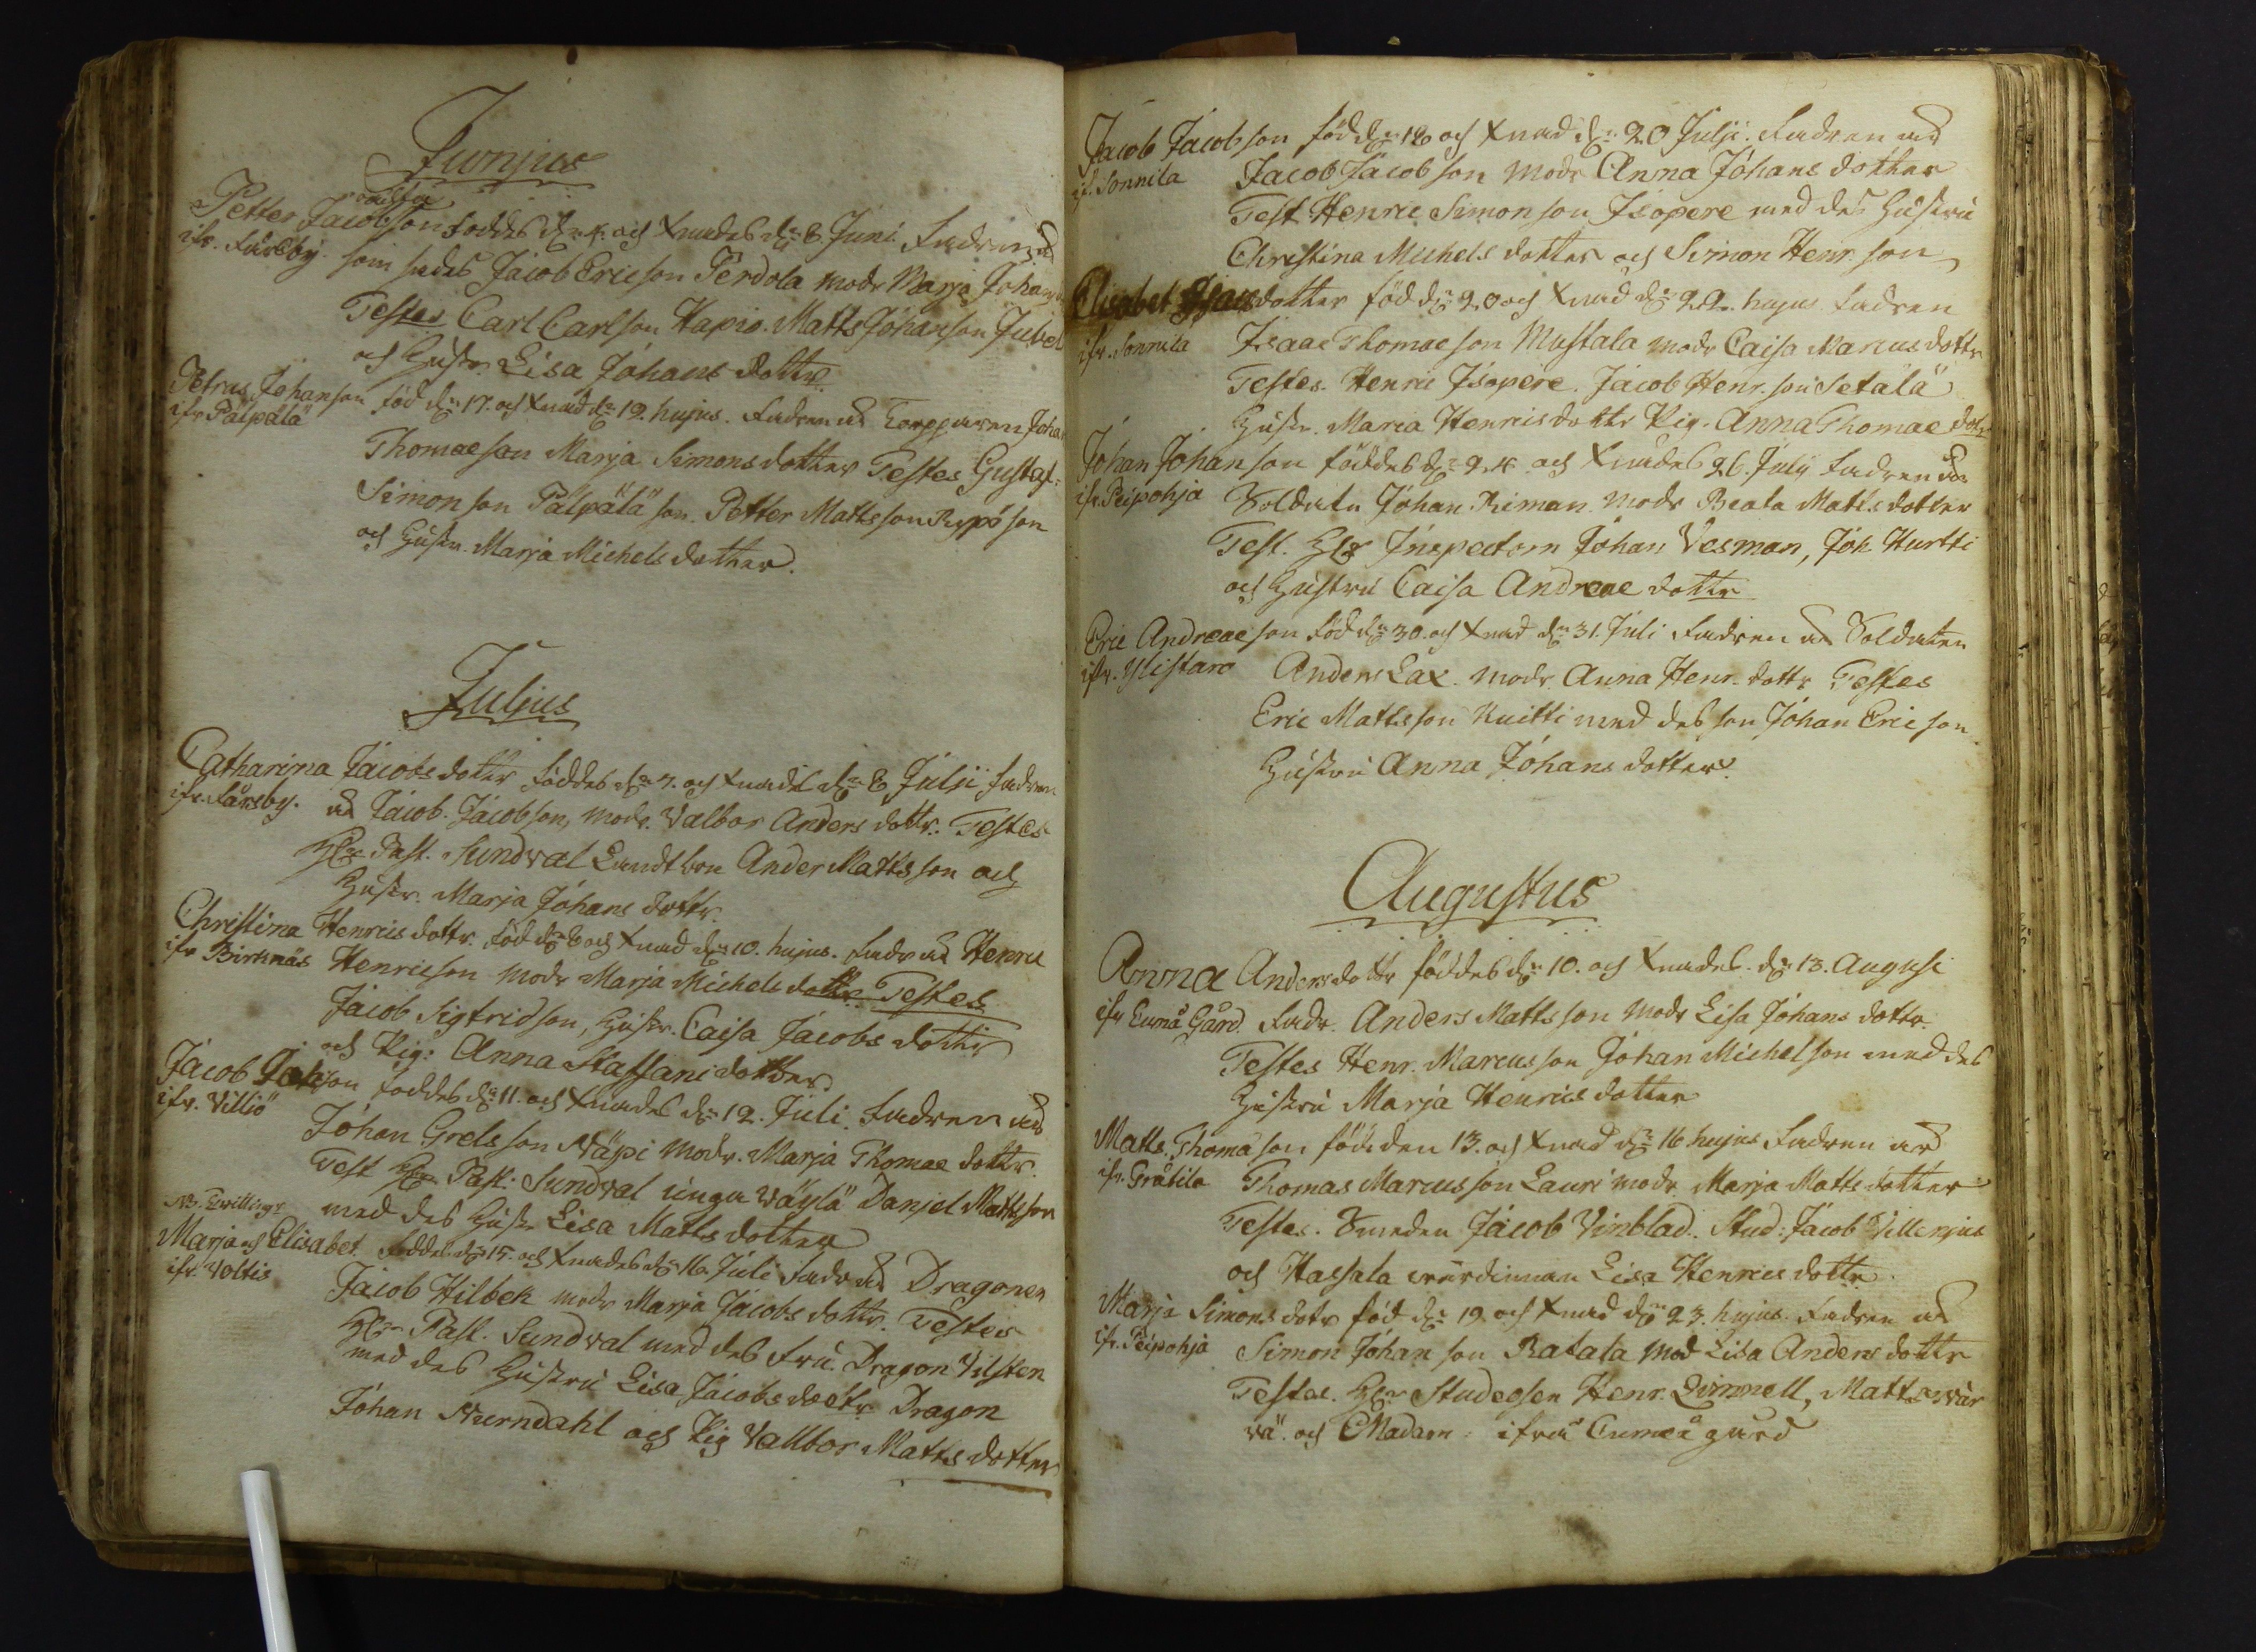 Junjus
oächta
Petter Jacobson foddes dn 4. och Xnades dn 8. Juni. Fadren är
ifr. Fårsby. som sades Jacob Ericson Perdola modr Marja Johans
Testes Carl Carlson Hapio. Matts Johanson Juvel
och Hustr. Lisa Johans dottr.
Petrus Johanson föd dn 17. och Xnad dn 19. hujus. Fadren är Torpparen Johan
ifr Pälpälä
Thomaeson Marja Simonsdotter Testes Gustaf.
Simonson Pälpälä son. Petter Mattsson Rypö son
och Hustr. Marja Michels dotter.
Juljus
Catharina Jacobs dotter föddes dn 7. och Xnades dn 8 Julji fadren
ifr. Fårsby. är Jacob Jacobson, modr. Valbor Anders dottr. Testes
Hr Past. Sundval Landtbon Ander Matts son och
Hustr. Marja Johans dottr.
Christina Henrics dottr. föd dn 8 och Xnad dn 10. hujus. Fadr är Henric
ifr Birknäs Henricson modr Marja Michels dottr. Testes
Jacob Sigfridson, Hustr. Caisa Jacobs dotter
och Pig: Anna Staffans dotter.
Jacob Johson foddes dn 11. och Xnades dn 12. Juli. Fadren är
ifr. Villiö
Johan Grels son Näpi modr. Marja Thomae dottr.
Test Hr Past: Sundval unga Wäylä Danjel Mattsson
med des Hustr Lisa Matts dotter
NB. Tvillingr
Marja och Elisabet föddes dn 15. och Xnades dn 16 Juli Fadr är Dragonen
ifr. Voltis
Jacob Hilbek modr Marja Jacobs dottr. Testes
Hr Past. Sundval med des Fru. Dragon Vilsten
med des Hustru Lisa Jacobs doctr Dragon
Johan Nurndahl och Pig Vallbor Matts dotter
Jacob Jacobson född dn 18 och Xnad dn 20 Julji. Fadren är
ifr. Sonnila Jacob Jacobson modr Anna Johans dotter
Test Henric Simonson Isopere med des Hustru
Christina Michels dotter och Simon Henr. son
Elisabet Isacsdotter föd dn 20 och Xnad dn 22. hujus Fadren
ifr. Sonnila Isaac Thomaeson Mustala modr Caisa Marcus dottr
Testes. Henric Isopere. Jacob Henr. son Setälä
Hustr. Maria Henricsdottr Pig. Anna Thomae dotr
Johan Johanson föddes dn 24 och Xnades 26. July Fadren är
ifr. Peipohja Soldatn Johan Riman modr Beata Matts dotter
Test. Hr Inspectorn Johan Vesman, Joh Hurtti
och Hustru Caisa Andreae dotter
Eric Andreaeson föd dn 30. och Xnad dn 31. Juli Fadren är Soldaten
ifr. Ylistaro Anders Lax. modr. Anna Henr. dottr Testes
Eric Mattsson Kuitti med des son Johan Ericson
Hustru Anna Johans dotter.
Augustus
Anna Andersdottr föddes dn 10. och Xnades. dn 13. Augusi
ifr Eumå Gård. Fadr. Anders Mattsson modr Lisa Johans dottr.
Testes Henr. Marcusson Johan Michelson med des
Hustru Marja Henrics dotter
Matts Thomason född den 13. och Xnad dn 16 hujus Fadren är
ifr. Gråtila Thomas Marcusson Lauri modr Marja Matts dotter
Testes. Smeden Jacob Vinblad. Stud: Jacob Villenjus
och Hassala värdinnan Lisa Henrics dottr.
Marja Simons dotr föd dn 19 och Xnad dn 23. hujus. Fadren är
ifr. Peipohja Simon Johanson Ratala mod Lisa Anders dottr
Testes. Hr Studegsen Henr. Qvinnell, Matts
wä. och Madam ifrå Cumåå gård